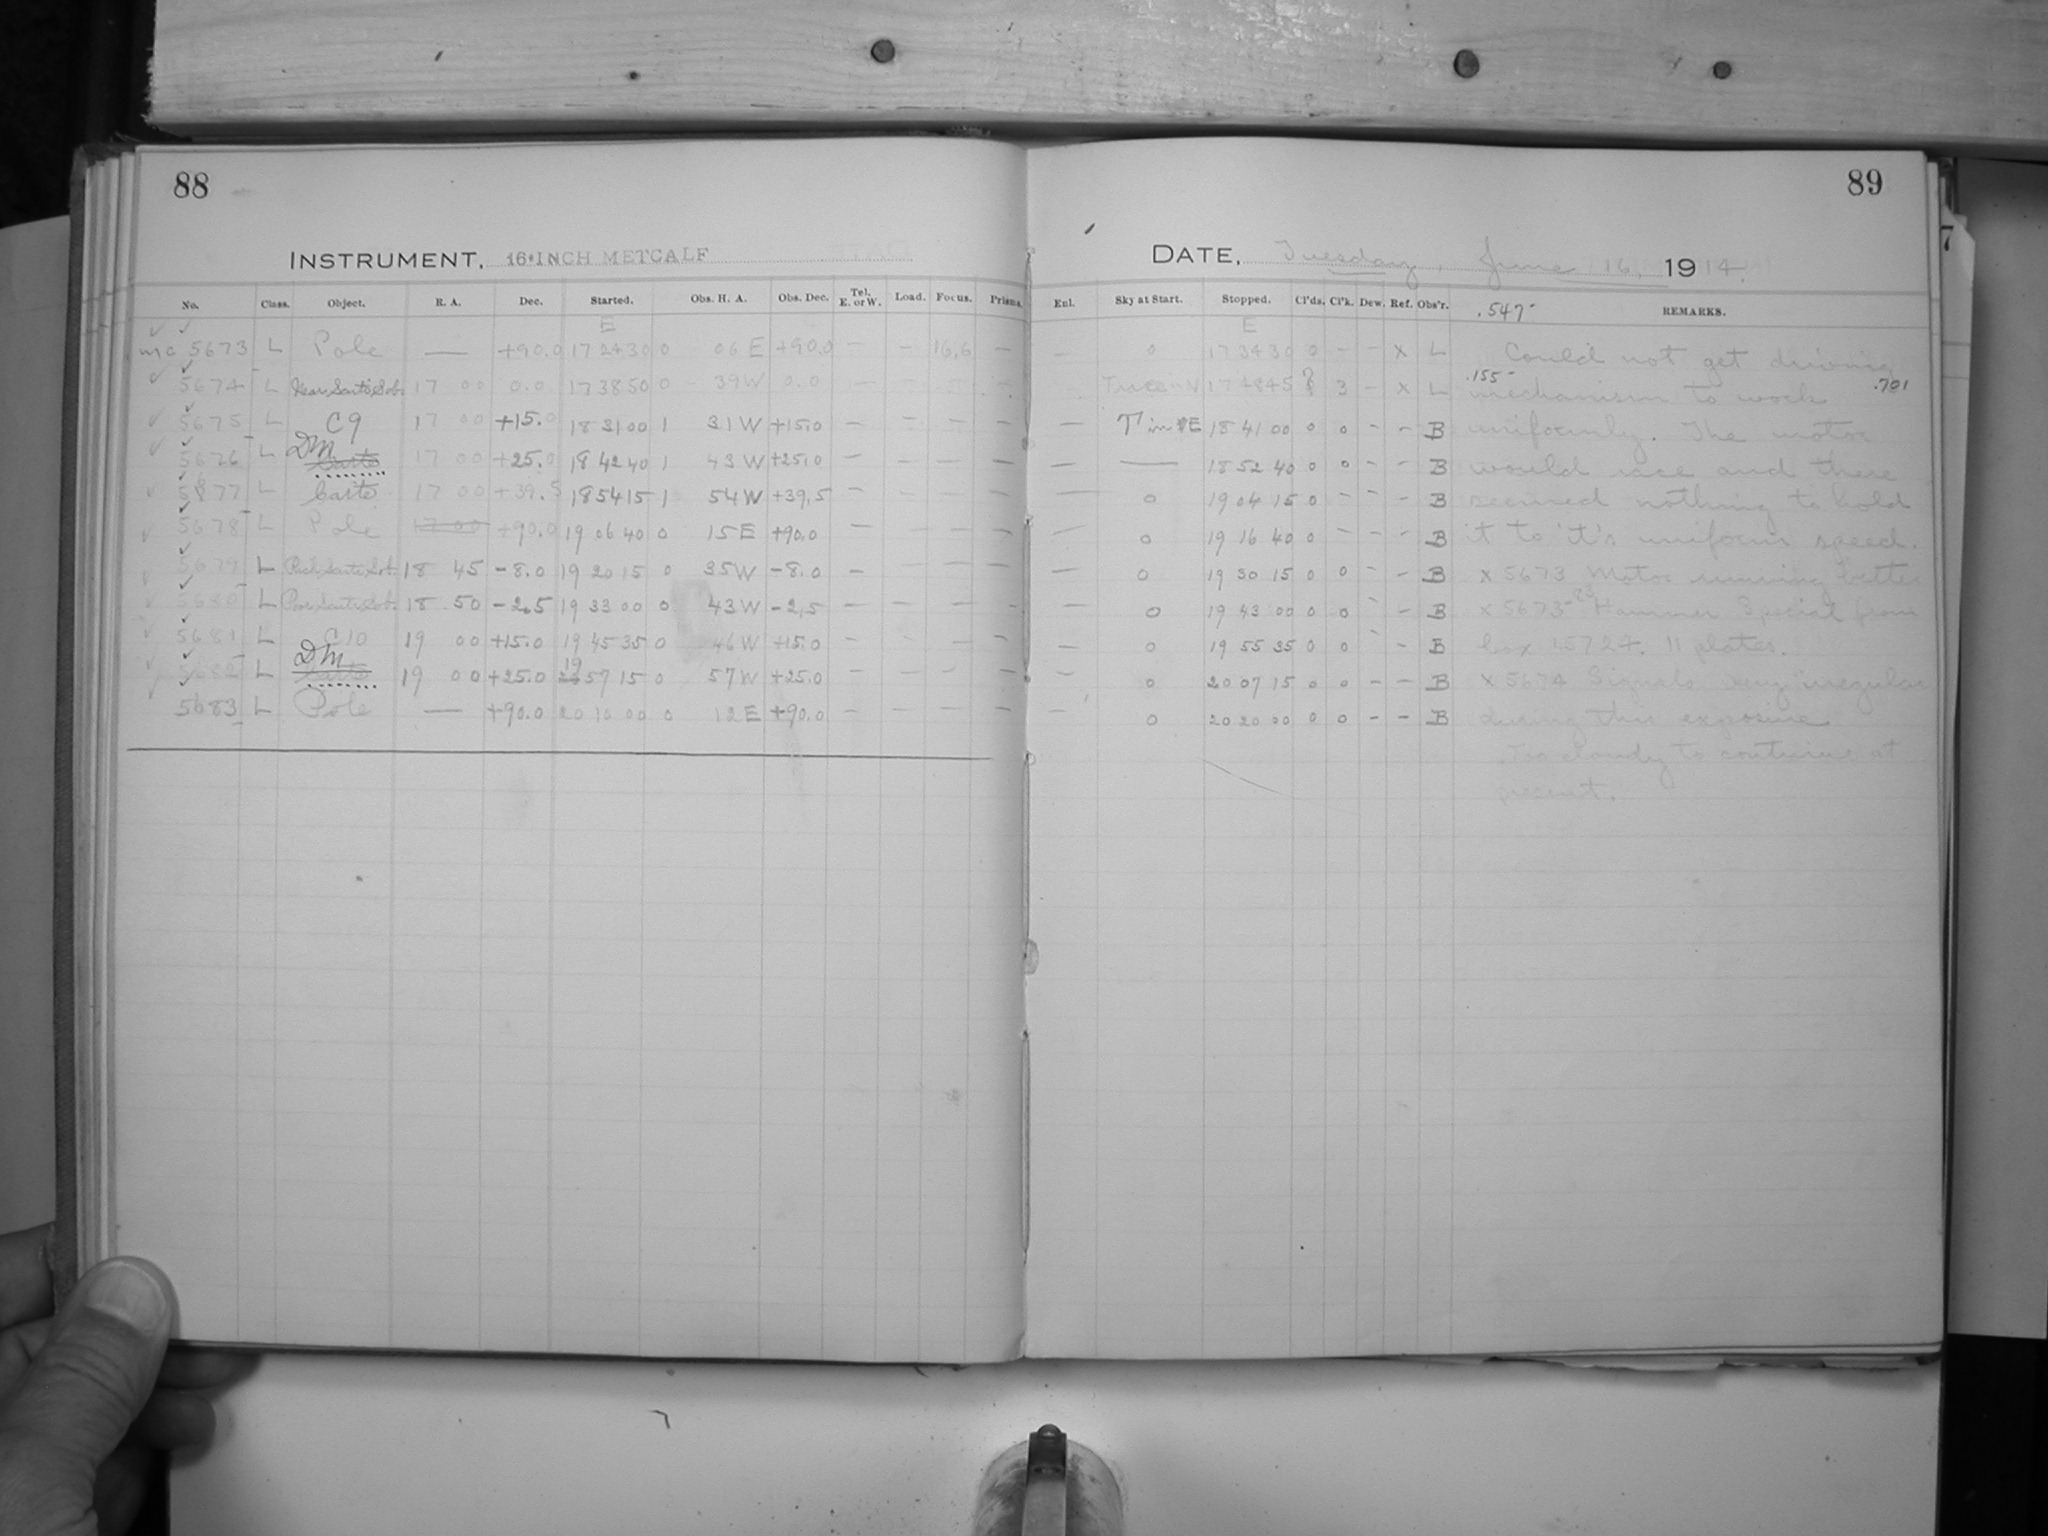 88
89
7
INSTRUMENT, 16-INCH METCALF
DATE, Tuesday, June 16, 1914.
No. Class. Object. R. A. Dec. Started. Obs. H. A. Obs. Dec. Tel. E. or W. Load. Focus. Prisms. Enl. Sky at Start. Stopped. Cl'ds. Cl'k. Dew. Ref. Obs'r. .547 REMARKS.
E E
mc 5673 L Pole — +90.0 17 24 30 0 06 E +90.0 — — 16.6 — — 0 17 34 30 0 — — x L Could not get driving
5674 L 17 00 0.0 17 38 50 0 39 W 0.0 — 17 48 45 ? 3 — x L .155 mechanism to work .701
5675 L C9 17 00 +15.0 18 31 00 1 31 W +15.0 — — — — — T in E 18 41 00 0 0 — — B uniformly. The motor
5676 L DM Carte 17 00 +25.0 18 42 40 1 43 W +25.0 — — — — — — 18 52 40 0 0 — — B would race and there
5677 L Carte 17 00 +39.5 18 54 15 1 54 W +39.5 — — — — — 0 19 04 15 0 — — — B seemed nothing to hold
5678 L Pole 17 00 +90.0 19 06 40 0 15 E +90.0 — — — — — 0 19 16 40 0 — — — B it to it's uniform speed.
5679 L 18 45 -8.0 19 20 15 0 35 W -8.0 — — — — — 0 19 30 15 0 0 — — B x 5673 Motor running better
5680 L 18 50 -2.5 19 33 00 0 43 W -2.5 — — — — — 0 19 43 00 0 0 — — B x 5673-83 Hammer Special from
5681 L C10 19 00 +15.0 19 45 35 0 46 W +15.0 — — — — — 0 19 55 35 0 0 — — B box 15724. 11 plates.
5682 L DM Carte 19 00 +25.0 19 57 15 0 57 W +25.0 — — — — — 0 20 07 15 0 0 — — B x 5674 Signals very irregular
5683 L Pole — +90.0 20 10 00 0 12 E +90.0 — — — — — 0 20 20 00 0 0 — — B during this exposure
Too cloudy to continue at
present.